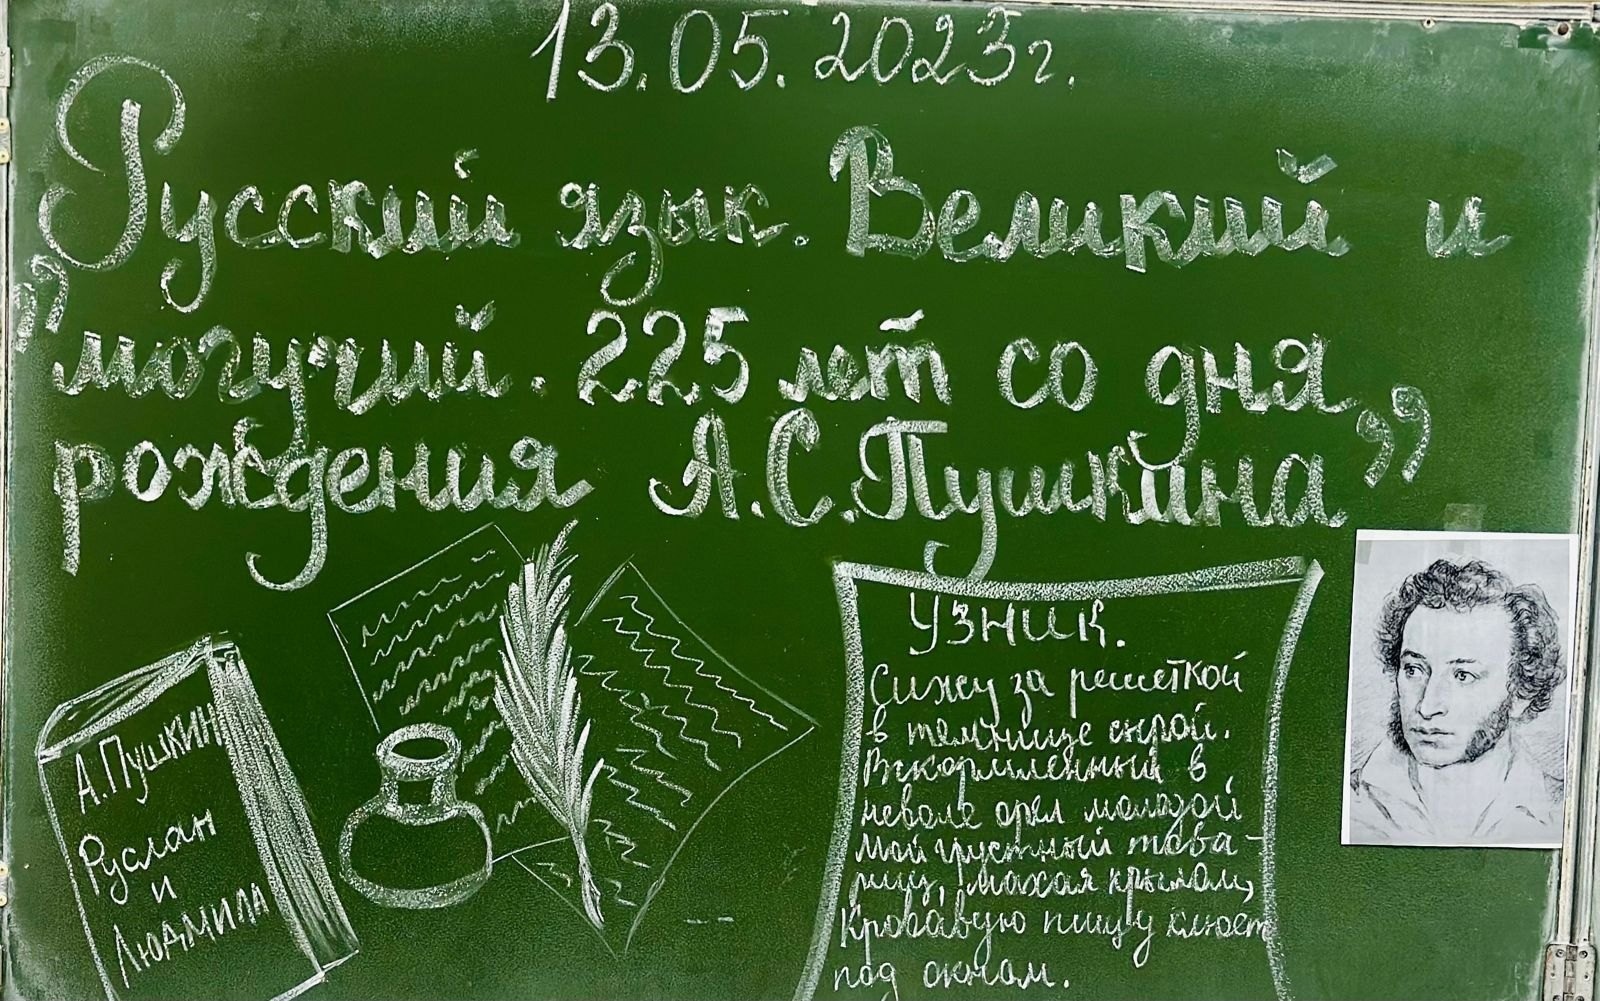 13.05.2023г.
Русский язык. Великий и
„могучий. 225 лет со дня
рождения А.С.Пушкина”
А.Пушкин
Руслан
и
Людмила
Узник.
Сижу за решеткой
в темнице сырой.
Вскормленный в
неволе орел молодой
мой грустный това-
рищ, махая крылом,
Кровавую пищу клюет
под окном.